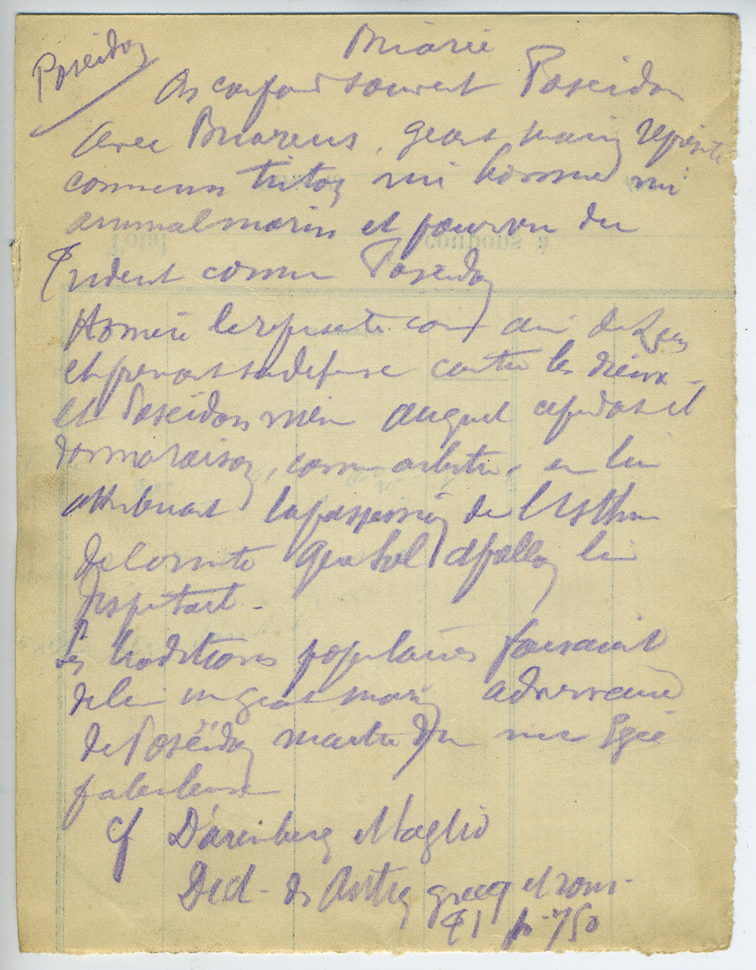 Poseidon
Briarée
On confond souvent Poseidon
avec Briareus, geant marin représenté
comme un triton mi homme mi
animal marin et pourvu du
Trident comme Poseidon
Homère le représente comme ami de Zeus
et prenant sa défense contre les dieux
et Poseidon même auquel cependant il
donna raison, comme arbitre, en lui
attribuant la possession de l'Isthme
de Corinthe que Sol Apollon lui
disputait -
Les traditions populaires faisaient
de lui un geant marin adversaire
de Poséidon maitre d'une mer Egée
fabuleuse
cf Daremberg et Saglio
Dict. des Antiq grecq et rom.
T1 p. 750